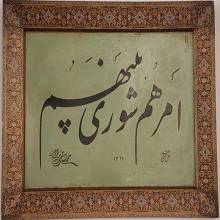 امرهم شوری بینهم